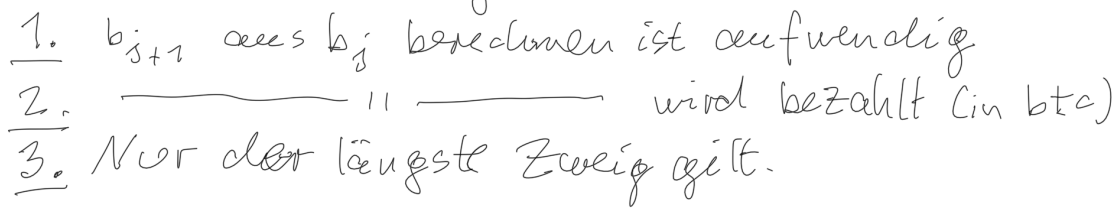 1. b_{j+1} aus b_j berechnen ist aufwendig
2. ——— " ——— wird bezahlt (in btc)
3. Nur der längste Zweig gilt.